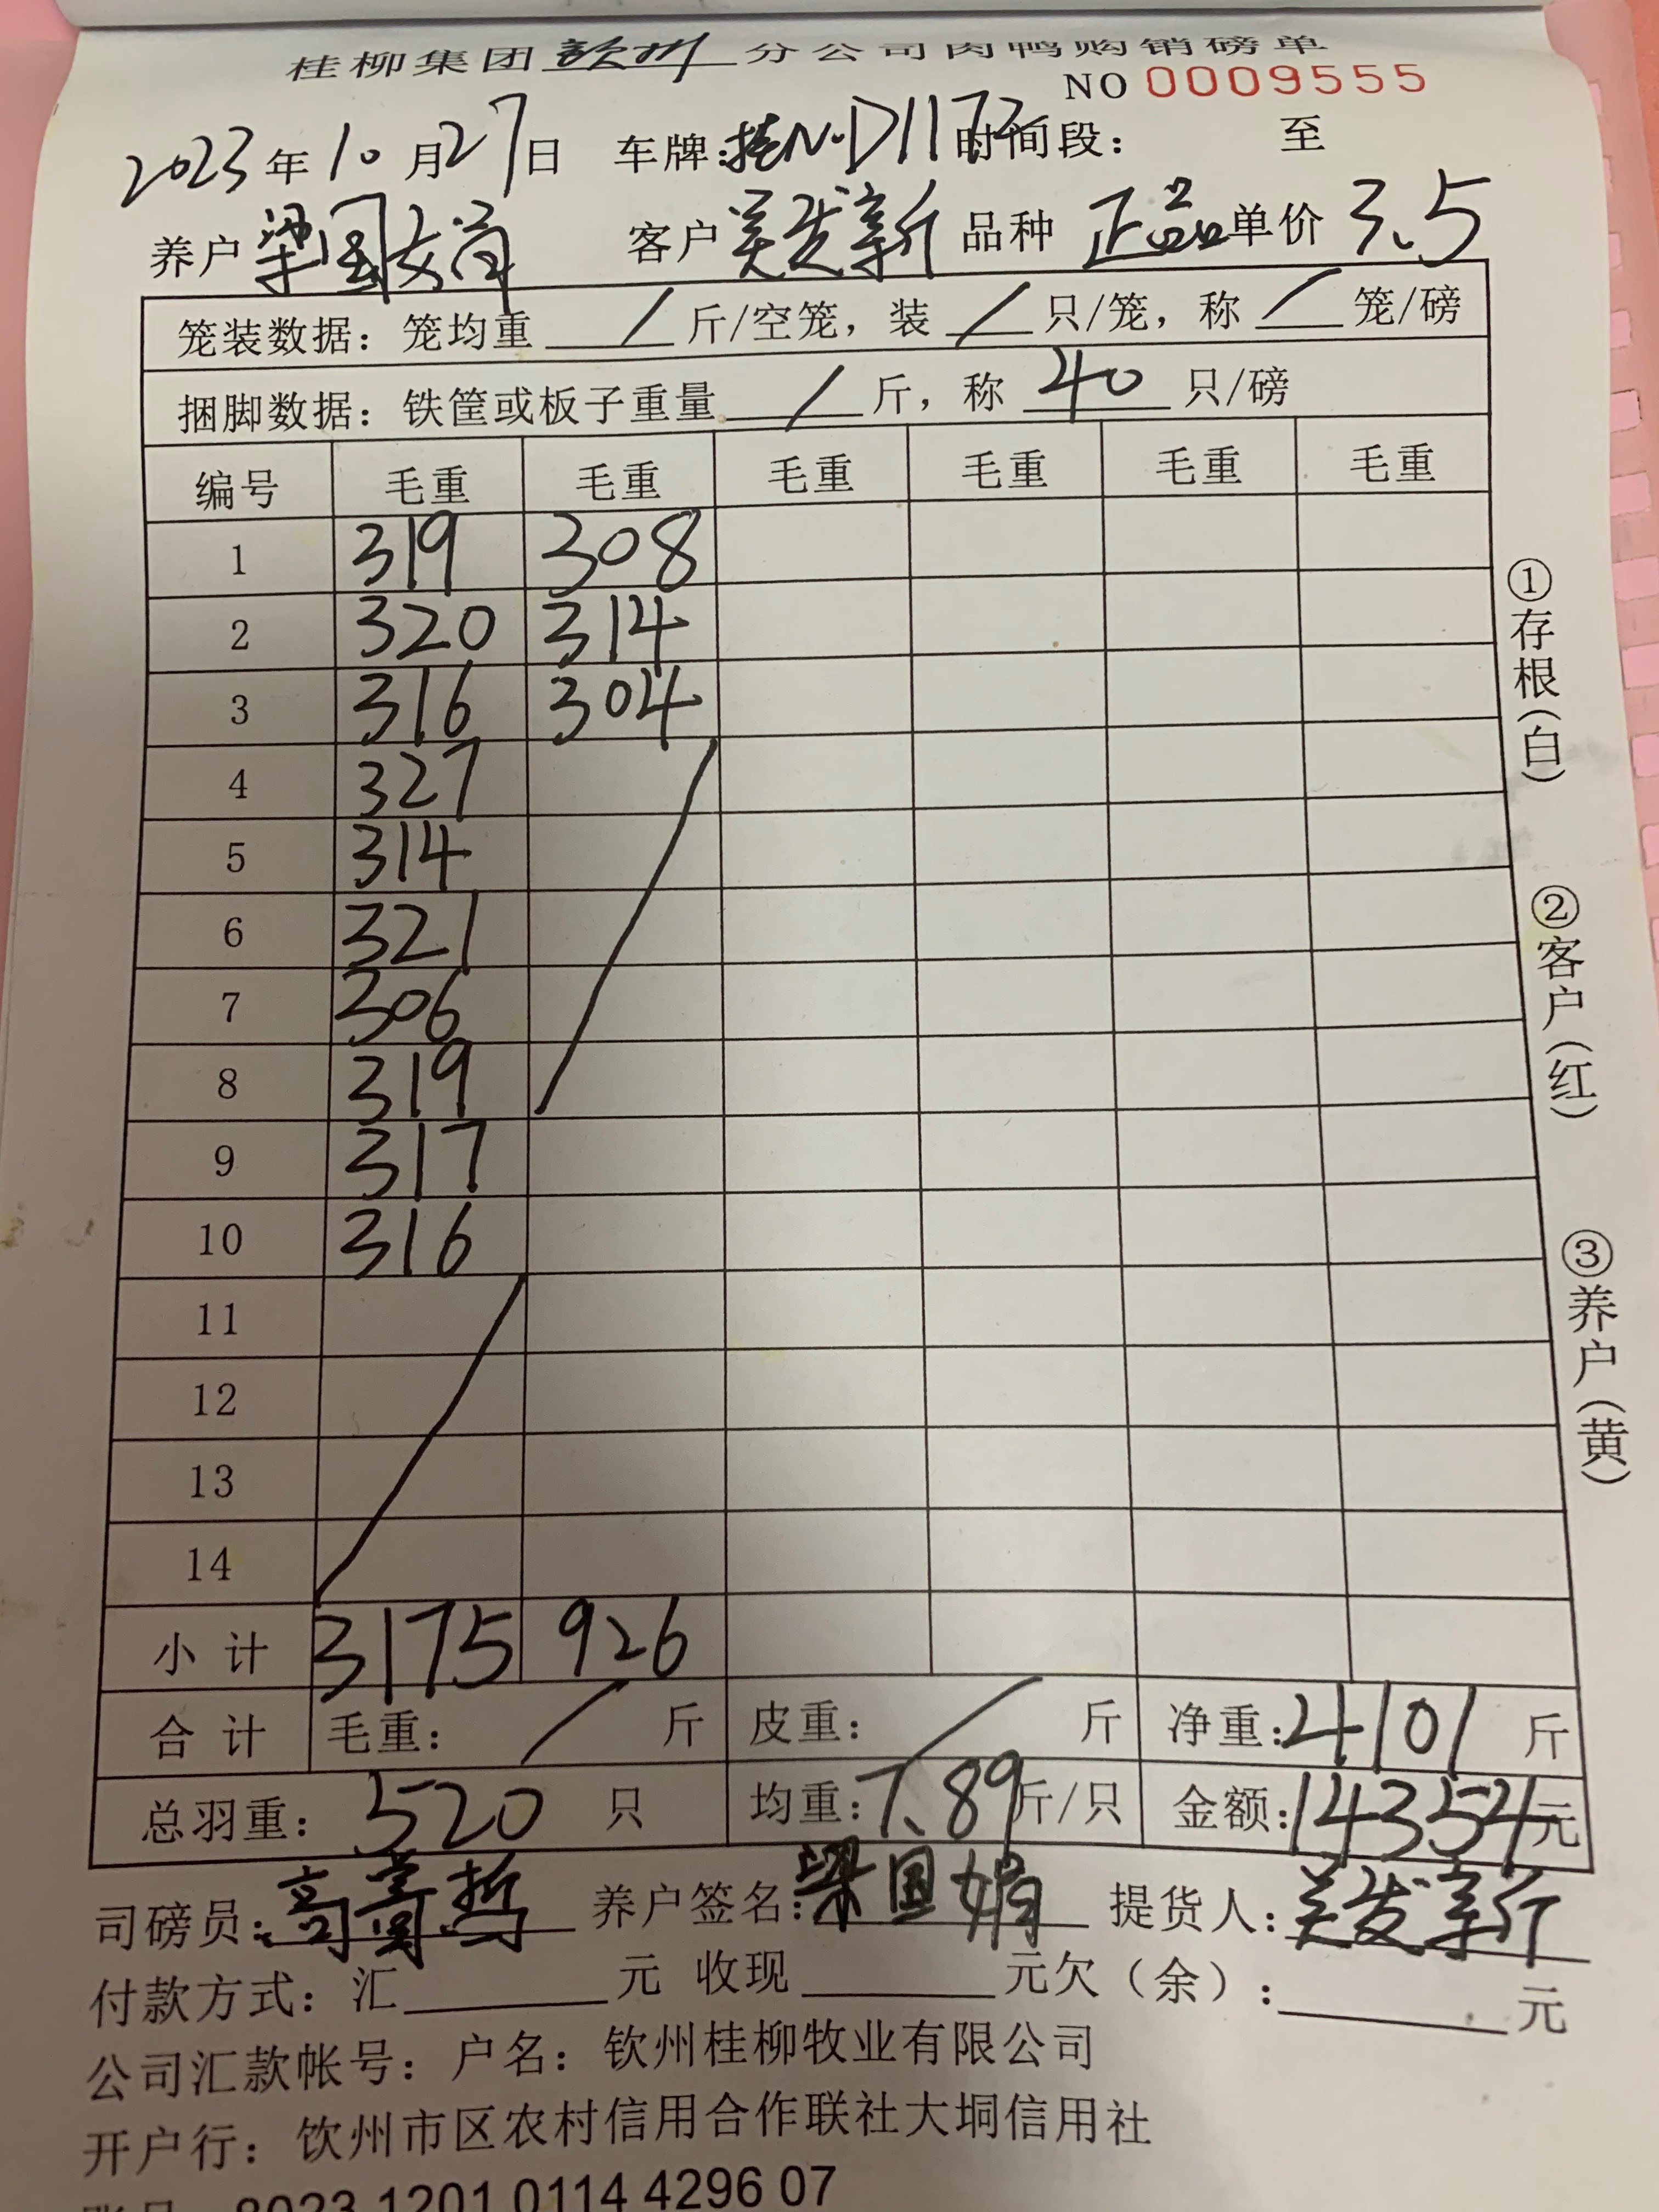 桂柳集团钦州分公司肉鸭购销磅单
NO 0009555
2023年10月27日 车牌:桂N·D1173 时间段: 至
养户 梁国娟 客户 吴发新 品种 正品 单价 3.5
笼装数据: 笼均重 / 斤/空笼, 装 / 只/笼, 称 / 笼/磅
捆脚数据: 铁筐或板子重量 / 斤, 称 40 只/磅
编号 毛重 毛重 毛重 毛重 毛重 毛重
1 319 308
2 320 314
3 316 304
4 327
5 314
6 321
7 306
8 319
9 317
10 316
11
12
13
14
小计 3175 926
合计 毛重: / 斤 皮重: / 斤 净重: 4101 斤
总羽重: 520 只 均重: 7.89 斤/只 金额: 14354 元
司磅员: 高 哲 养户签名: 梁国娟 提货人: 吴发新
付款方式: 汇 元 收现 元欠(余): 元
公司汇款帐号: 户名: 钦州桂柳牧业有限公司
开户行: 钦州市区农村信用合作联社大垌信用社
8023 1201 0114 4296 07
①存根(白)
②客户(红)
③养户(黄)